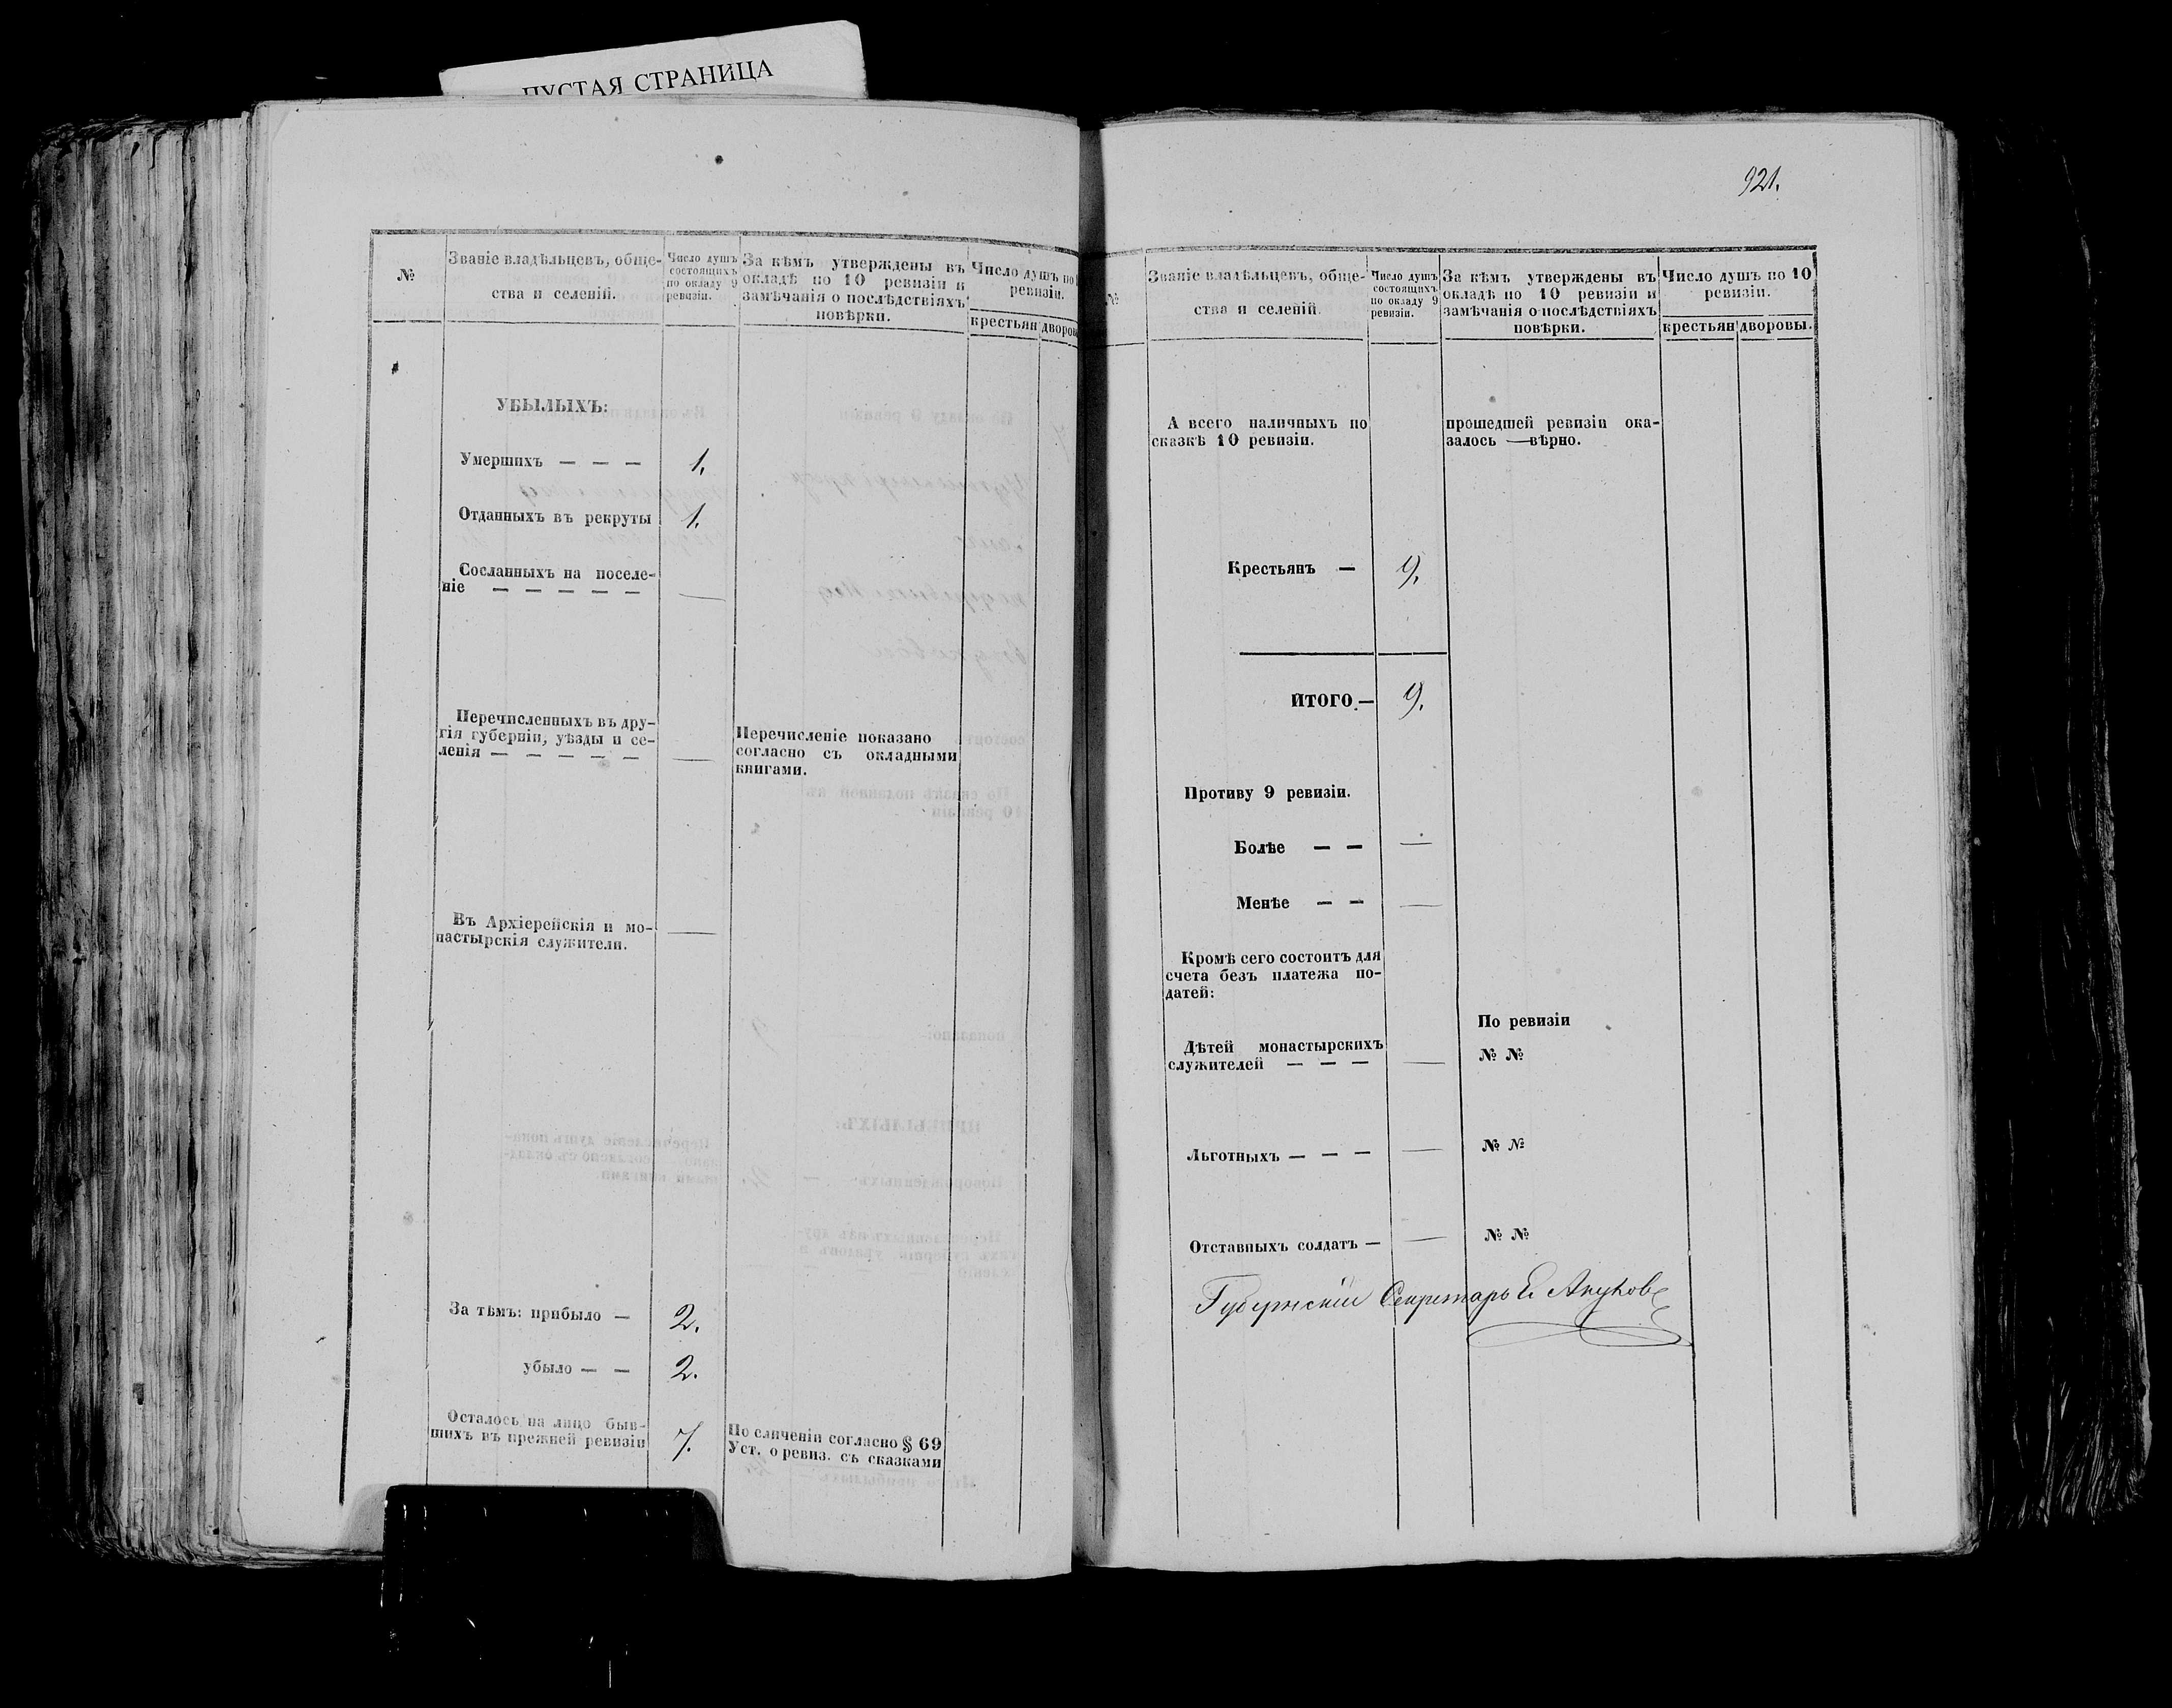 ПУСТАЯ СТРАНИЦА
№
Званіе владѣльцевъ, обще-
ства и селеній.
Число душъ
состоящихъ
по окладу 9
ревизіи.
За кѣмъ утверждены въ
окладѣ по 10 ревизіи и
замѣчанія о послѣдствіяхъ
повѣрки.
Число душъ по
ревизіи.
крестьян
дворов
УБЫЛЫХЪ:
Умершихъ — — — 1.
Отданныхъ въ рекруты 1.
Сосланныхъ на поселе-
ніе — — — — — —
Перечисленныхъ въ дру-
гія губерніи, уѣзды и се-
ленія — — — — — —
Перечисленіе показано
согласно съ окладными
книгами.
Въ Архіерейскія и мо-
настырскія служители. —
За тѣмъ: прибыло — 2.
убыло — — 2.
Осталось на лицо быв-
шихъ въ прежней ревизіи 7.
По сличеніи согласно § 69
Уст. о ревиз. съ сказками
921.
№
Званіе владѣльцевъ, обще-
ства и селеній.
Число душъ
состоящихъ
по окладу 9
ревизіи.
За кѣмъ утверждены въ
окладѣ по 10 ревизіи и
замѣчанія о послѣдствіяхъ
повѣрки.
Число душъ по 10
ревизіи.
крестьян
дворовы.
А всего наличныхъ по
сказкѣ 10 ревизіи.
прошедшей ревизіи ока-
залось — вѣрно.
Крестьянъ — 9.
ИТОГО — 9.
Противу 9 ревизіи.
Болѣе — — —
Менѣе — — —
Кромѣ сего состоитъ для
счета безъ платежа по-
датей:
По ревизіи
Дѣтей монастырскихъ
служителей — — — —
№ №
Льготныхъ — — — — № №
Отставныхъ солдатъ — — № №
Губернскій Секретарь